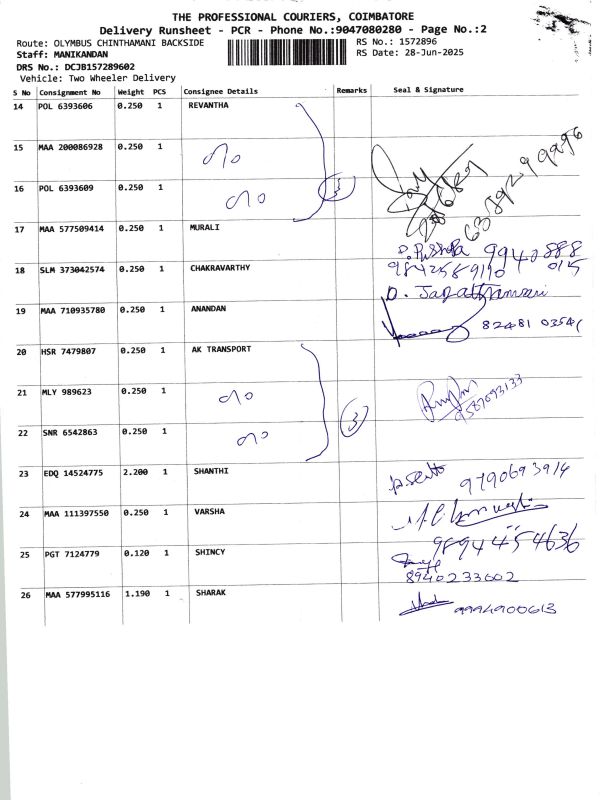 THE PROFESSIONAL COURIERS, COIMBATORE
Delivery Runsheet - PCR - Phone No.:9047080280 - Page No.:2
Route: OLYMBUS CHINTHAMANI BACKSIDE
RS No.: 1572896
Staff: MANIKANDAN
RS Date: 28-Jun-2025
DRS No.: DCJB157289602
Vehicle: Two Wheeler Delivery
S No Consignment No Weight PCS Consignee Details Remarks Seal & Signature
14 POL 6393606 0.250 1 REVANTHA
15 MAA 200086928 0.250 1
16 POL 6393609 0.250 1
17 MAA 577509414 0.250 1 MURALI
18 SLM 373042574 0.250 1 CHAKRAVARTHY
9842589110
19 MAA 710935780 0.250 1 ANANDAN
82481
20 HSR 7479807 0.250 1 AK TRANSPORT
21 MLY 989623 0.250 1
22 SNR 6542863 0.250 1
3
23 EDQ 14524775 2.200 1 SHANTHI 9790693914
24 MAA 111397550 0.250 1 VARSHA
9894454636
25 PGT 7124779 0.120 1 SHINCY
8940233602
26 MAA 577995116 1.190 1 SHARAK 9994900613